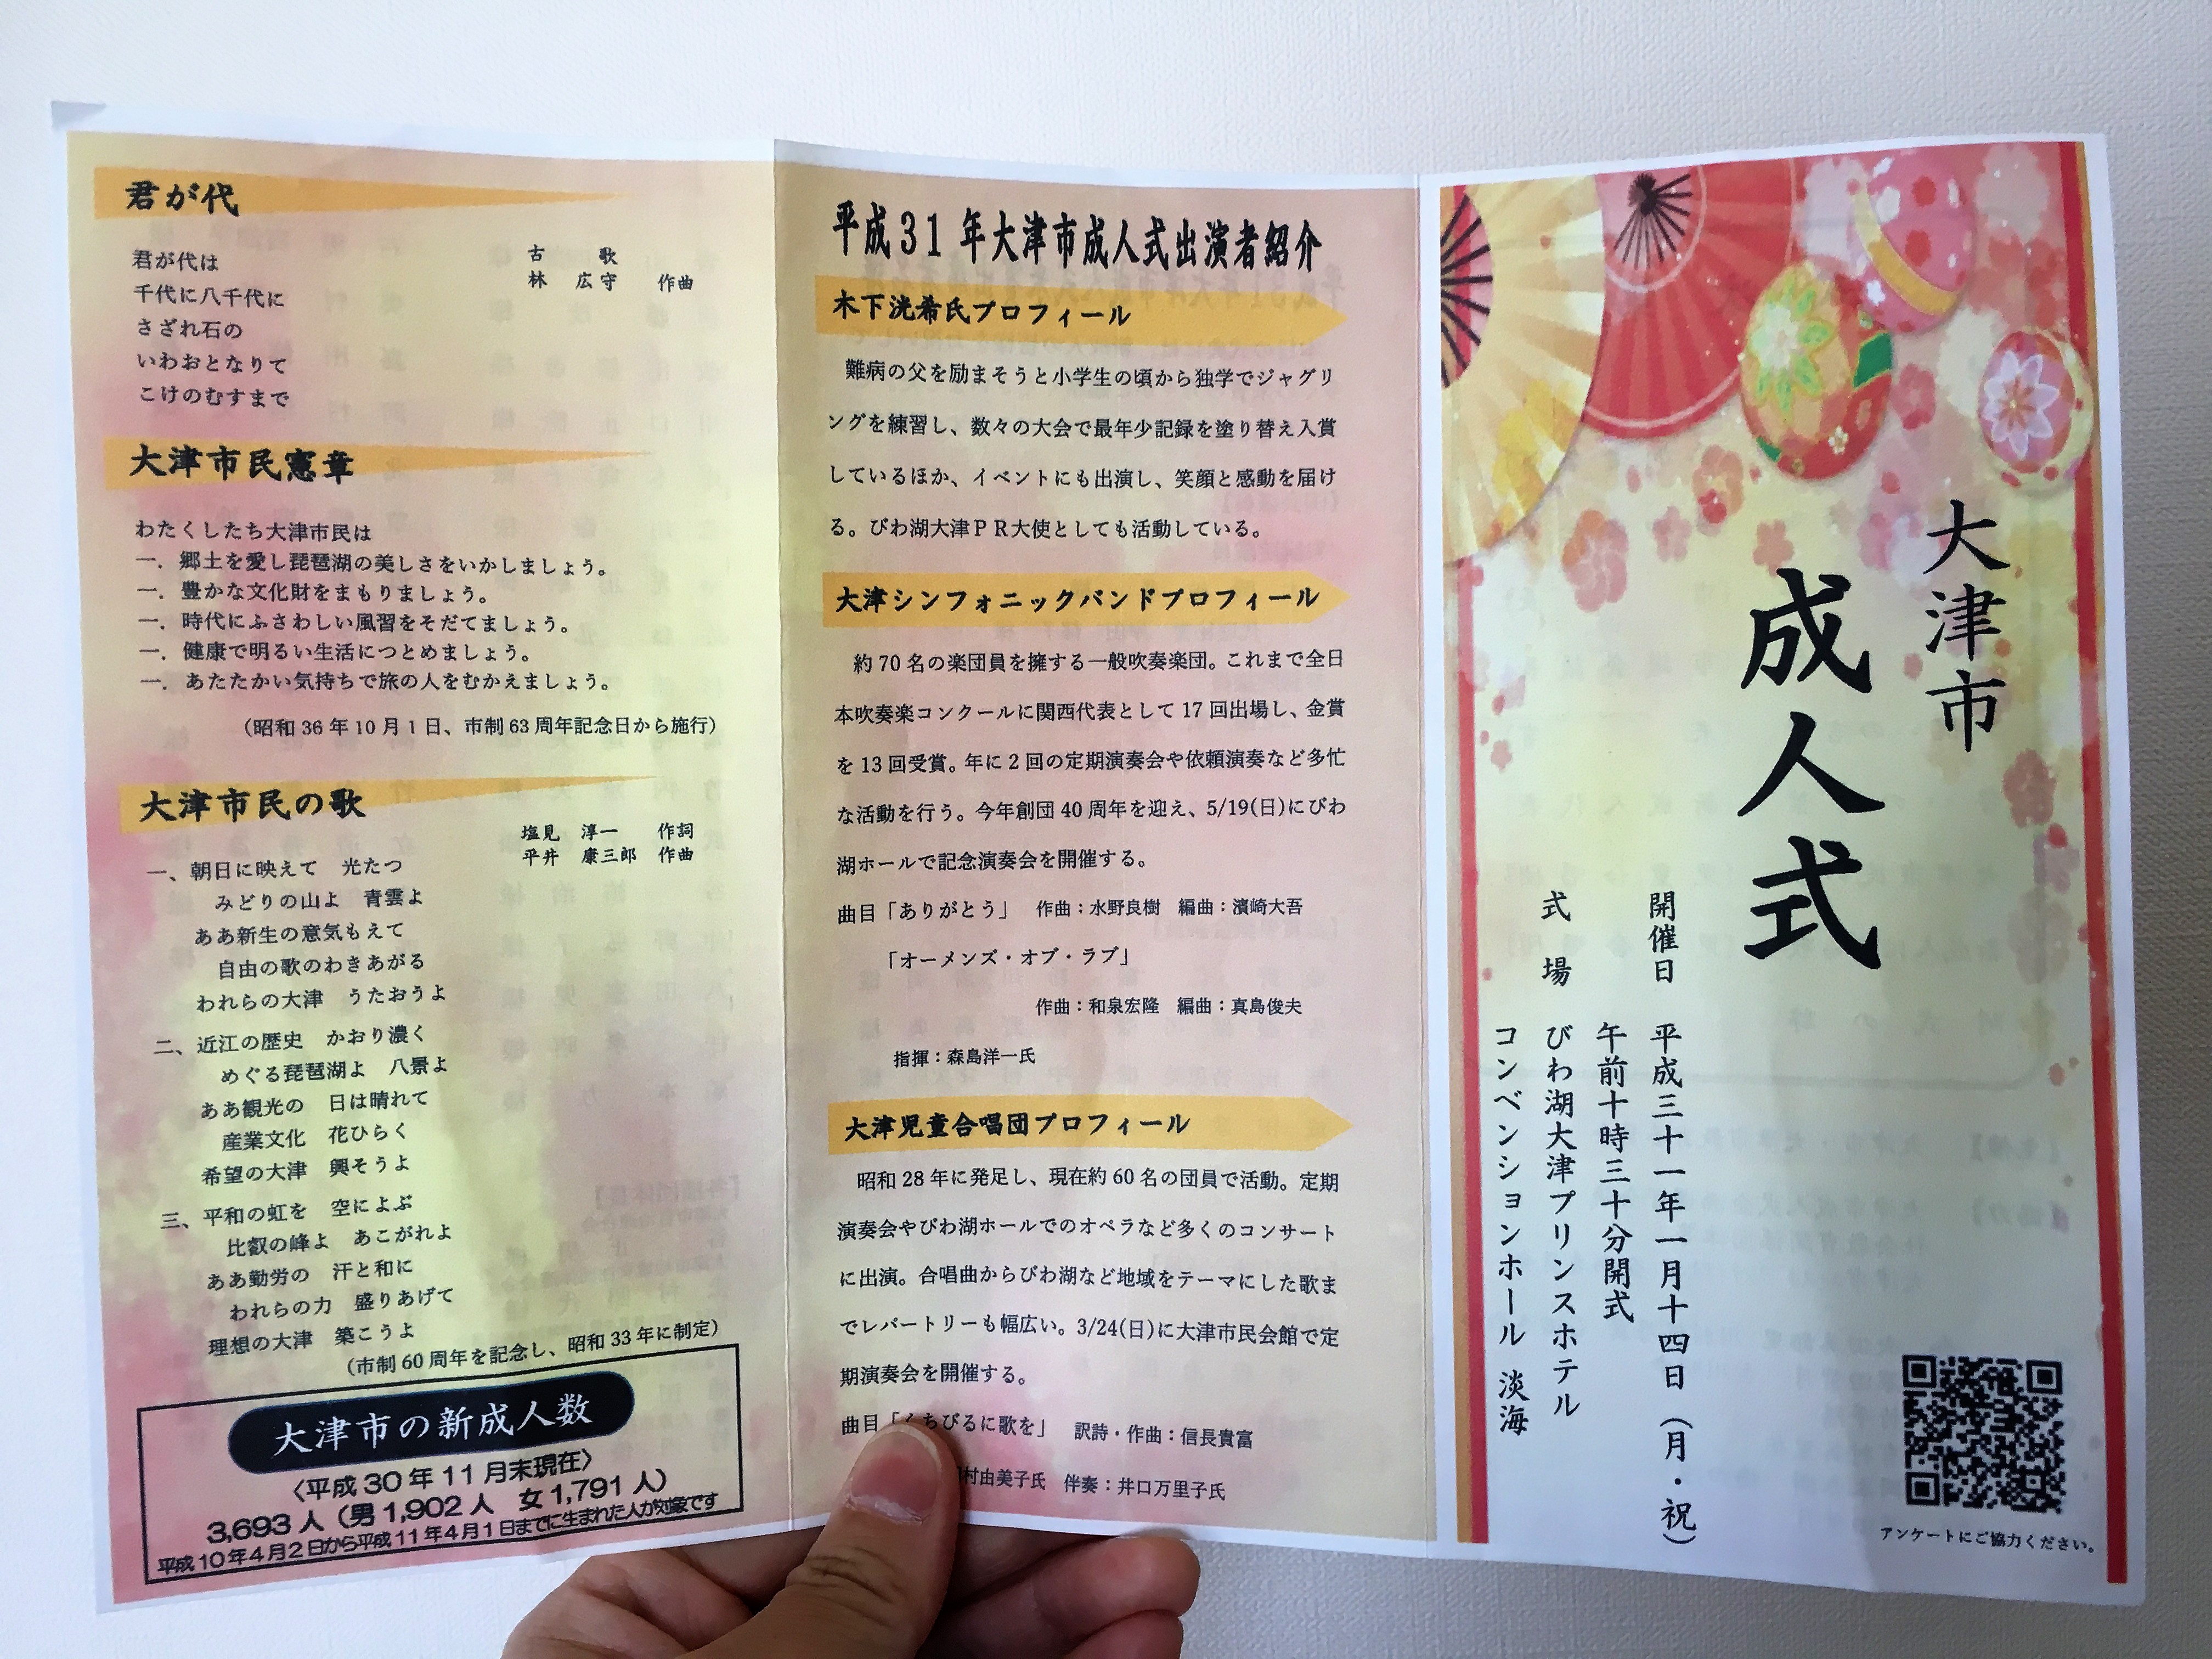 君が代
古　歌
林　広守　作曲
君が代は
千代に八千代に
さざれ石の
いわおとなりて
こけのむすまで
大津市民憲章
わたくしたち大津市民は
一．郷土を愛し琵琶湖の美しさをいかしましょう。
一．豊かな文化財をまもりましょう。
一．時代にふさわしい風習をそだてましょう。
一．健康で明るい生活につとめましょう。
一．あたたかい気持ちで旅の人をむかえましょう。
（昭和36年10月1日、市制63周年記念日から施行）
大津市民の歌
塩見　淳一　作詞
平井　康三郎　作曲
一、朝日に映えて　光たつ
みどりの山よ　青雲よ
ああ新生の意気もえて
自由の歌のわきあがる
われらの大津　うたおうよ
二、近江の歴史　かおり濃く
めぐる琵琶湖よ　八景よ
ああ観光の　日は晴れて
産業文化　花ひらく
希望の大津　興そうよ
三、平和の虹を　空によぶ
比叡の峰よ　あこがれよ
ああ勤労の　汗と和に
われらの力　盛りあげて
理想の大津　築こうよ
（市制60周年を記念し、昭和33年に制定）
大津市の新成人数
〈平成30年11月末現在〉
3,693人（男1,902人　女1,791人）
平成10年4月2日から平成11年4月1日までに生まれた人が対象です
平成31年大津市成人式出演者紹介
木下洸希氏プロフィール
難病の父を励まそうと小学生の頃から独学でジャグリ
ングを練習し、数々の大会で最年少記録を塗り替え入賞
しているほか、イベントにも出演し、笑顔と感動を届け
る。びわ湖大津ＰＲ大使としても活動している。
大津シンフォニックバンドプロフィール
約70名の楽団員を擁する一般吹奏楽団。これまで全日
本吹奏楽コンクールに関西代表として17回出場し、金賞
を13回受賞。年に2回の定期演奏会や依頼演奏など多忙
な活動を行う。今年創団40周年を迎え、5/19(日)にびわ
湖ホールで記念演奏会を開催する。
曲目「ありがとう」　作曲：水野良樹　編曲：濵崎大吾
「オーメンズ・オブ・ラブ」
作曲：和泉宏隆　編曲：真島俊夫
指揮：森島洋一氏
大津児童合唱団プロフィール
昭和28年に発足し、現在約60名の団員で活動。定期
演奏会やびわ湖ホールでのオペラなど多くのコンサート
に出演。合唱曲からびわ湖など地域をテーマにした歌ま
でレパートリーも幅広い。3/24(日)に大津市民会館で定
期演奏会を開催する。
曲目「くちびるに歌を」　訳詩・作曲：信長貴富
村由美子氏　伴奏：井口万里子氏
大津市
成人式
開催日　平成三十一年一月十四日（月・祝）
午前十時三十分開式
式　場　びわ湖大津プリンスホテル
コンベンションホール　淡海
アンケートにご協力ください。